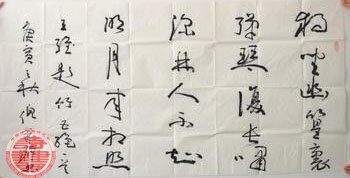 独坐幽篁里
弹琴复长啸
深林人不知
明月来相照
王维题竹五绝一首
庚寅之秋